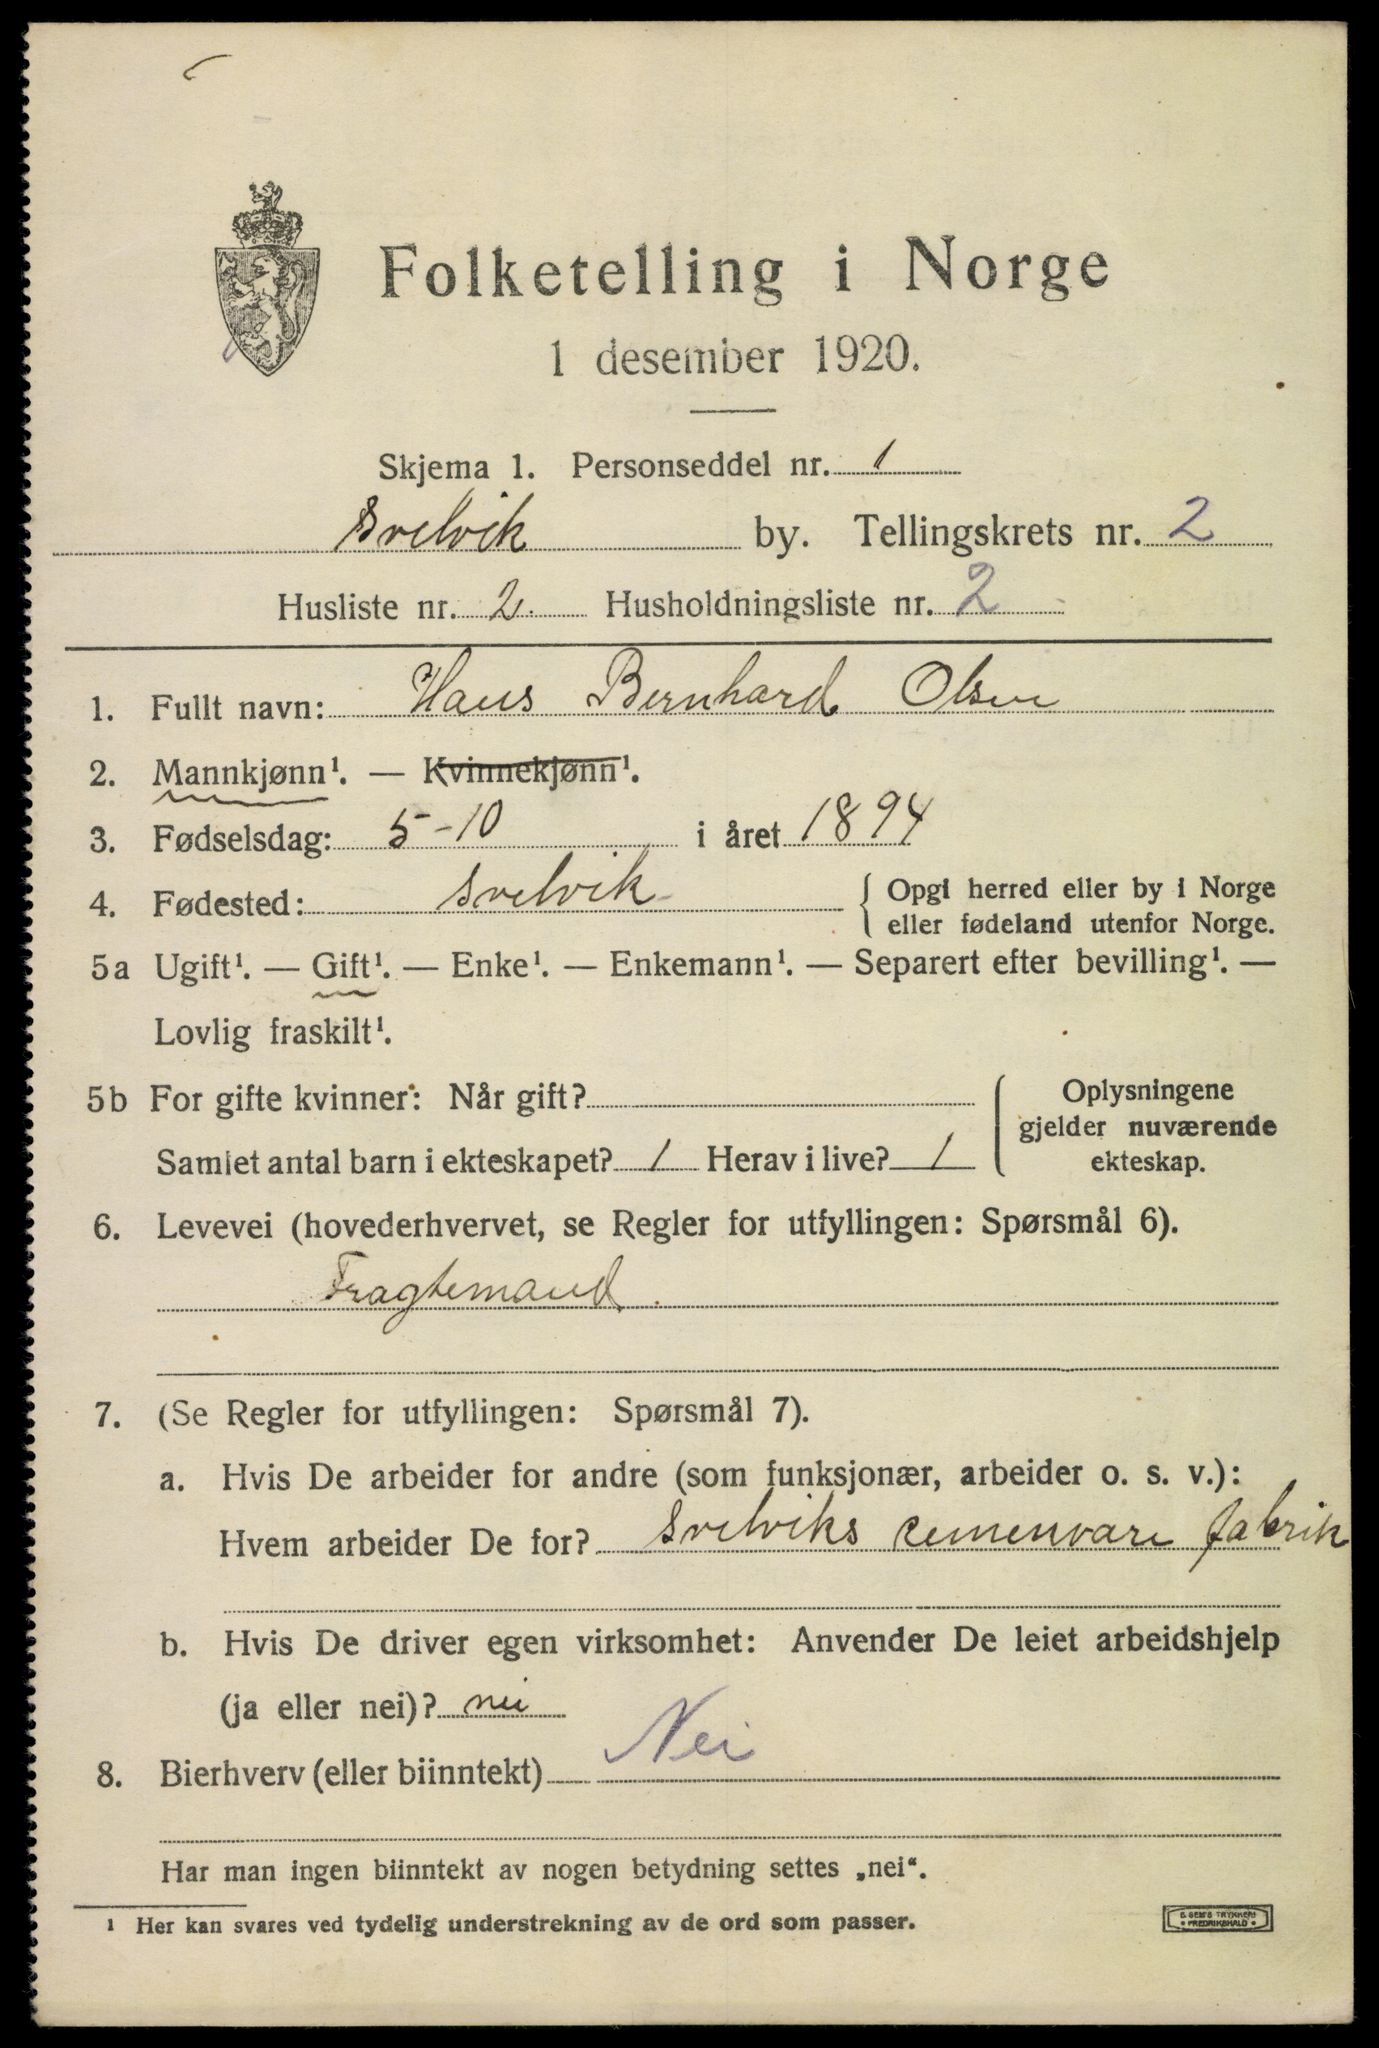 Folketelling i Norge
1 desember 1920.
Skjema 1. Personseddel nr. 1
Svelvik by. Tellingskrets nr. 2
Husliste nr. 2. Husholdningsliste nr. 2
1. Fullt navn: Hans Bernhard Olsen
2. Mannkjønn¹. — Kvinnekjønn¹.
3. Fødselsdag: 5-10 i året 1894
4. Fødested: Svelvik { Opgi herred eller by i Norge
eller fødeland utenfor Norge.
5a Ugift¹. — Gift¹. — Enke¹. — Enkemann¹. — Separert efter bevilling¹. —
Lovlig fraskilt¹.
5b For gifte kvinner: Når gift?
Samlet antal barn i ekteskapet? 1 Herav i live? 1
Oplysningene
gjelder nuværende
ekteskap.
6. Levevei (hovederhvervet, se Regler for utfyllingen: Spørsmål 6).
Fragtemand.
7. (Se Regler for utfyllingen: Spørsmål 7).
a. Hvis De arbeider for andre (som funksjonær, arbeider o. s. v.):
Hvem arbeider De for? Svelviks cemenvare fabrik
b. Hvis De driver egen virksomhet: Anvender De leiet arbeidshjelp
(ja eller nei)? nei
8. Bierhverv (eller biinntekt) Nei
Har man ingen biinntekt av nogen betydning settes „nei“.
¹ Her kan svares ved tydelig understrekning av de ord som passer.
E. SEM'S TRYKKERI
• FREDRIKSHALD •